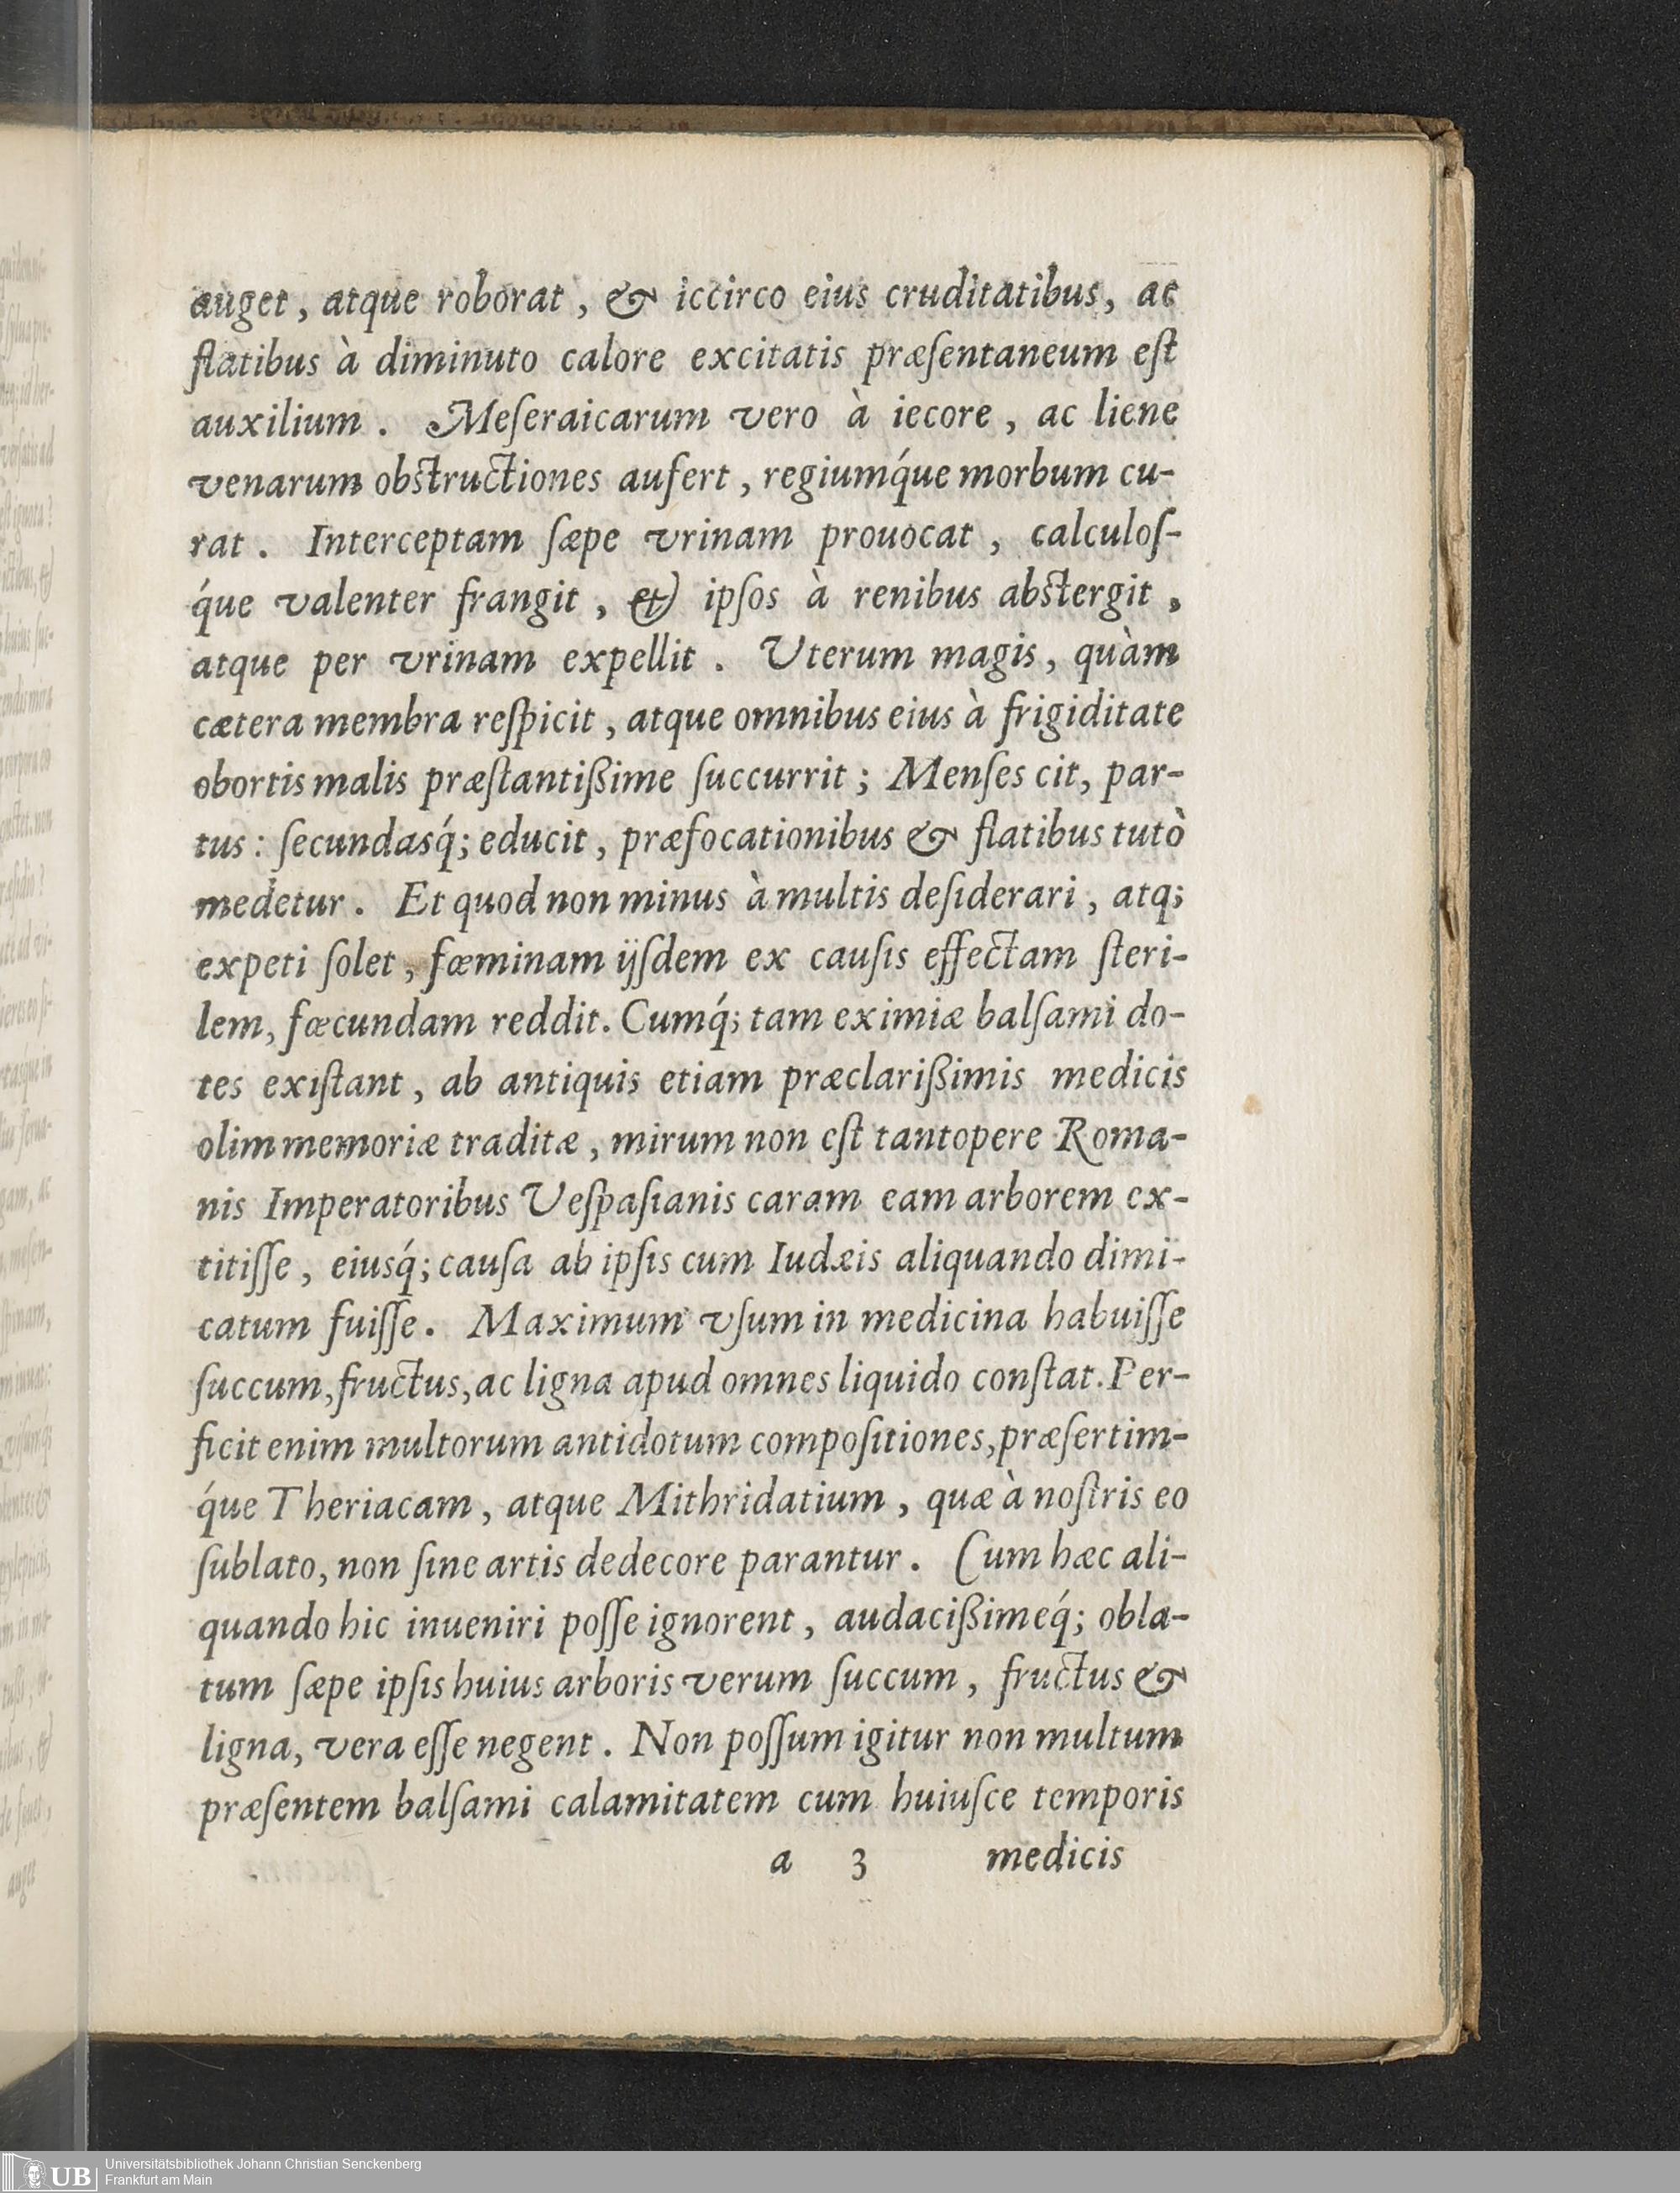 auget, atque roborat, & iccirco eius cruditatibus, ac
flatibus à diminuto calore excitatis præſentaneum eſt
auxilium. Meſeraicarum vero à iecore, ac liene
venarum obſtructiones aufert, regiumq́ue morbum cu-
rat. Interceptam ſæpe vrinam prouocat, calculoſ-
q́ue valenter frangit, & ipſos à renibus abſtergit,
atque per vrinam expellit. Vterum magis, quàm
cætera membra reſpicit, atque omnibus eius à frigiditate
obortis malis præſtantißime ſuccurrit; Menſes cit, par-
tus: ſecundasq́; educit, præfocationibus & flatibus tutò
medetur. Et quod non minus à multis deſiderari, atq;
expeti ſolet, fœminam ijſdem ex cauſis effectam ſteri-
lem, fœcundam reddit. Cumq́; tam eximiæ balſami do-
tes exiſtant, ab antiquis etiam præclarißimis medicis
olim memoriæ traditæ, mirum non eſt tantopere Roma-
nis Imperatoribus Veſpaſianis caram eam arborem ex-
titiſſe, eiusq́; cauſa ab ipſis cum Iudæis aliquando dimi-
catum fuiſſe. Maximum vſum in medicina habuiſſe
ſuccum, fructus, ac ligna apud omnes liquido conſtat. Per-
ficit enim multorum antidotum compoſitiones, præſertim-
q́ue Theriacam, atque Mithridatium, quæ à noſtris eo
ſublato, non ſine artis dedecore parantur. Cum hæc ali-
quando hic inueniri poſſe ignorent, audacißimeq́; obla-
tum ſæpe ipſis huius arboris verum ſuccum, fructus &
ligna, vera eſſe negent. Non poſſum igitur non multum
præſentem balſami calamitatem cum huiuſce temporis
a 3 medicis
UB Universitätsbibliothek Johann Christian Senckenberg
Frankfurt am Main